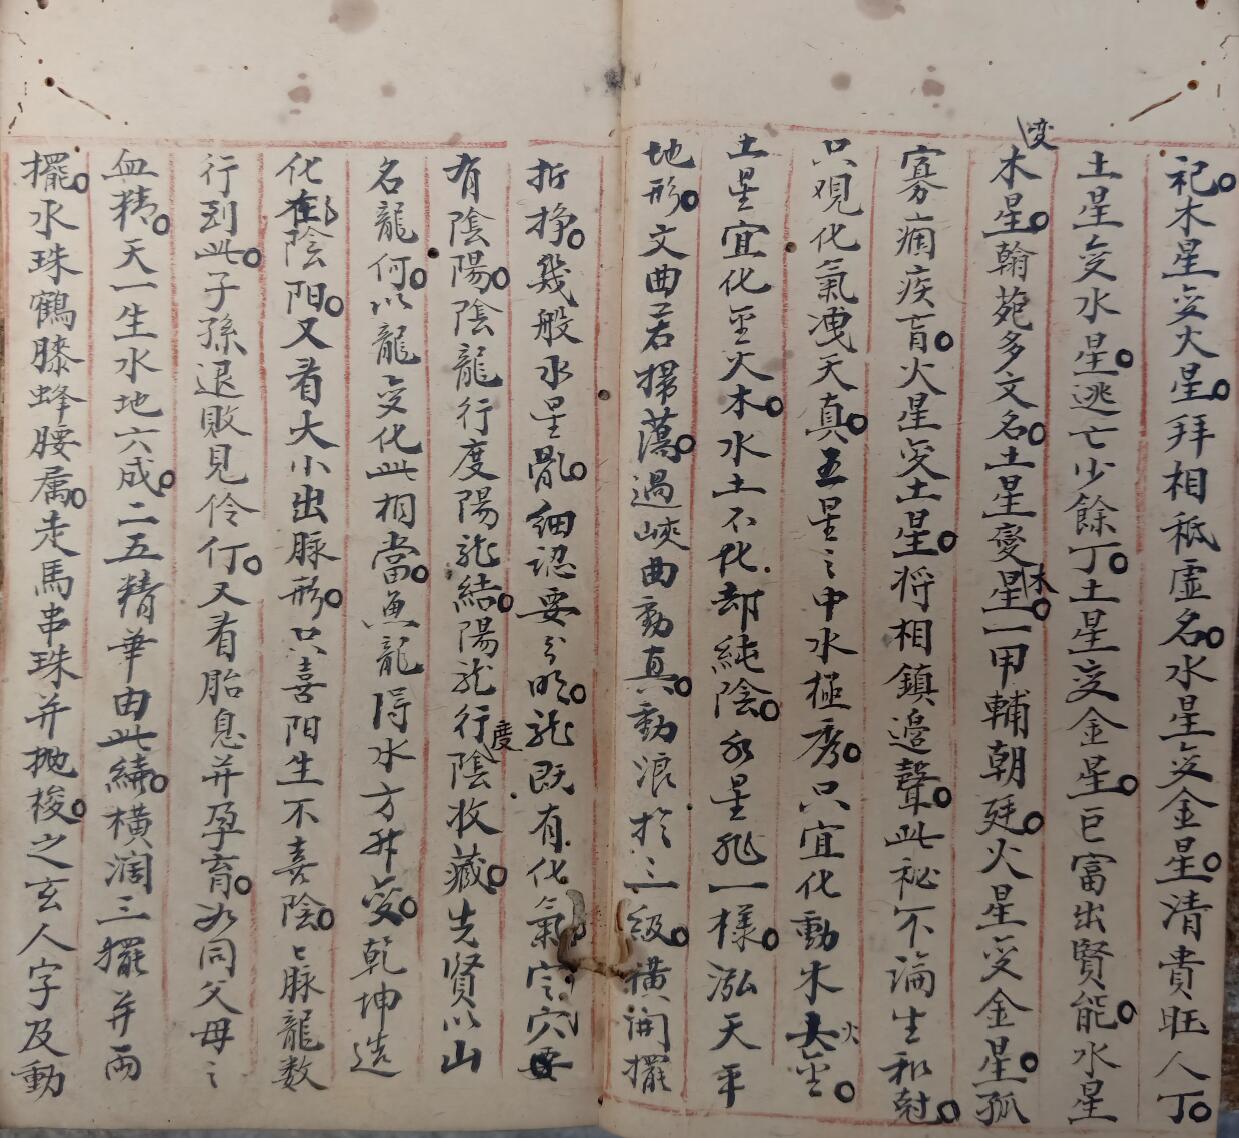 祀木星变火星拜相秪虚名水星变金星清貴旺人丁
土星变水星逃亡少餘丁土星变金星巨富出賢能水星
变木星翰苑多文名土星變木星一甲輔朝廷火星变金星孤
寡痼疾盲火星变土星将相鎮邉聲此秘不論生和尅
只观化氣洩天真五星之中水極秀只宜化動木火金
土星宜化金火木水土不化却純陰水星一樣泓天平
地形文曲若掃蕩過峽曲動真動浪於三級横開擺
折挣幾般水星龍細認要分明龍既有化氣定穴要
有陰陽陰龍行度陽龍結陽龍行度陰收藏先賢以山
名龍何以龍变化此相當魚龍得水方升变乾坤造
化在陰阳又看大小出脉形只喜阳生不喜陰陰脉龍数
行到此子孫退敗見伶仃又看胎息并孕育如同父母之
血精天一生水地六成二五精華由此續横濶三擺并两
擺水珠鶴膝蜂腰属走馬串珠并抛梭之玄人字及動